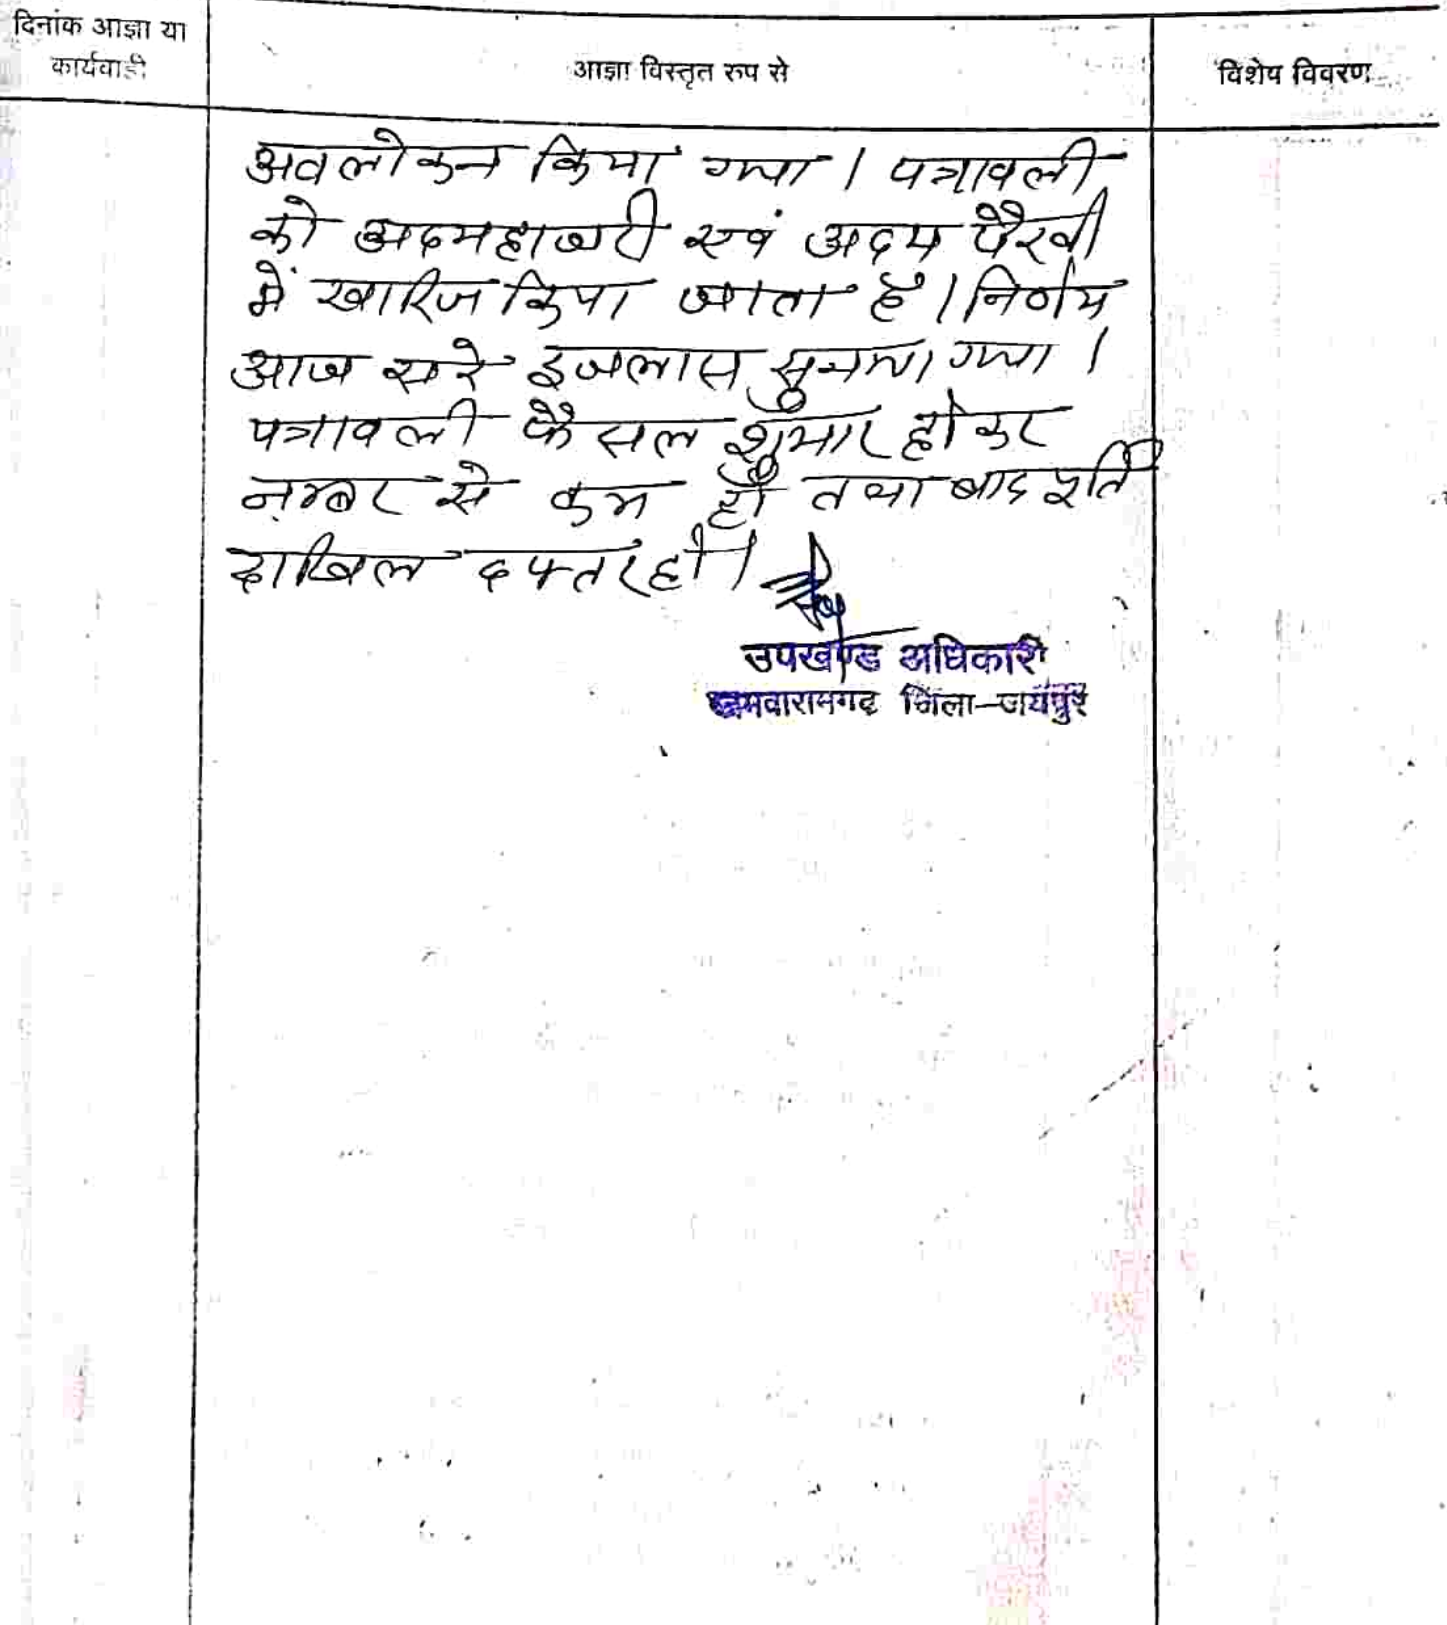 दिनांक आज्ञा या
कार्यवाही
आज्ञा विस्तृत रुप से
विशेष विवरण
अवलोकन किया गया । पत्रावली
को अदमहाजरी एवं अदम पैरवी
में खारिज किया जाता है । निर्णय
आज सरे इजलास सुनाया गया ।
पत्रावली फैसल शुमार होकर
नम्बर से कम हो तथा बाद पूर्ति
दाखिल दफ्तर हो ।
उपखण्ड अधिकारी
जमवारामगढ जिला–जयपुर